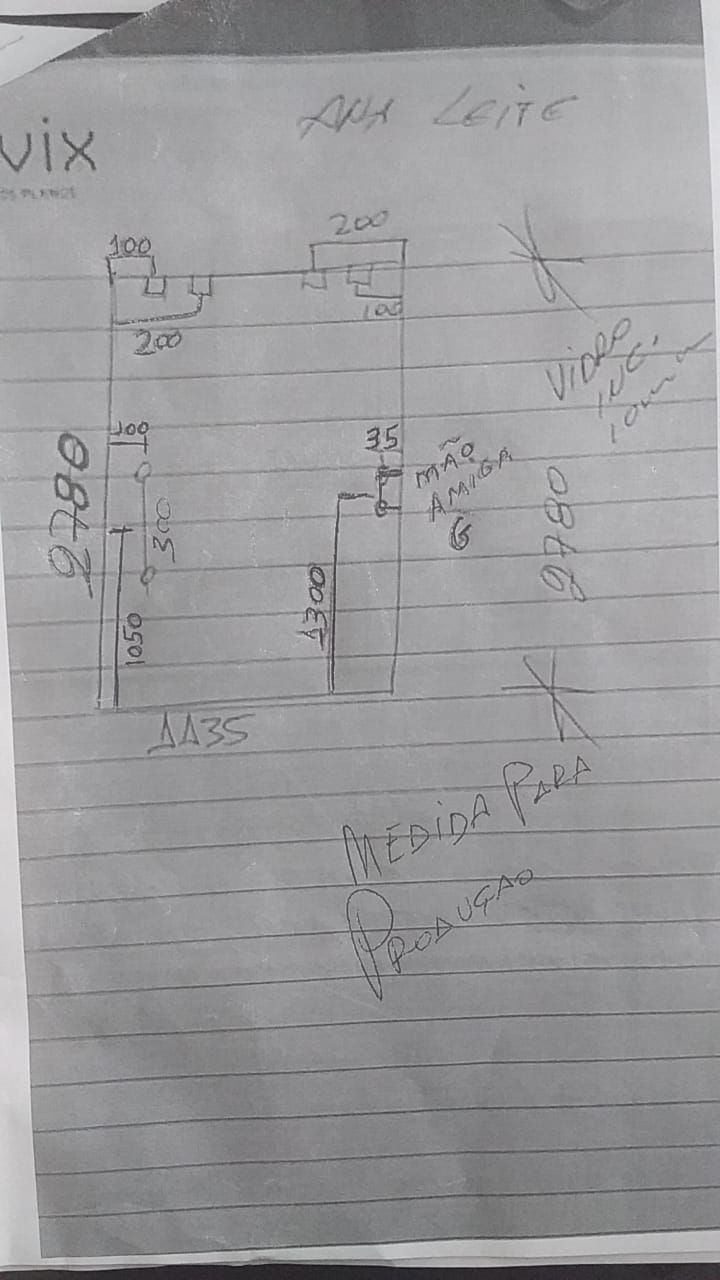 ANA LEITE
vix
200
100
100
200
VIDRO
INC.
10mm
100
35
MÃO
AMIGA
G
2780
300
2780
1050
1300
1135
MEDIDA PARA
PRODUÇAO